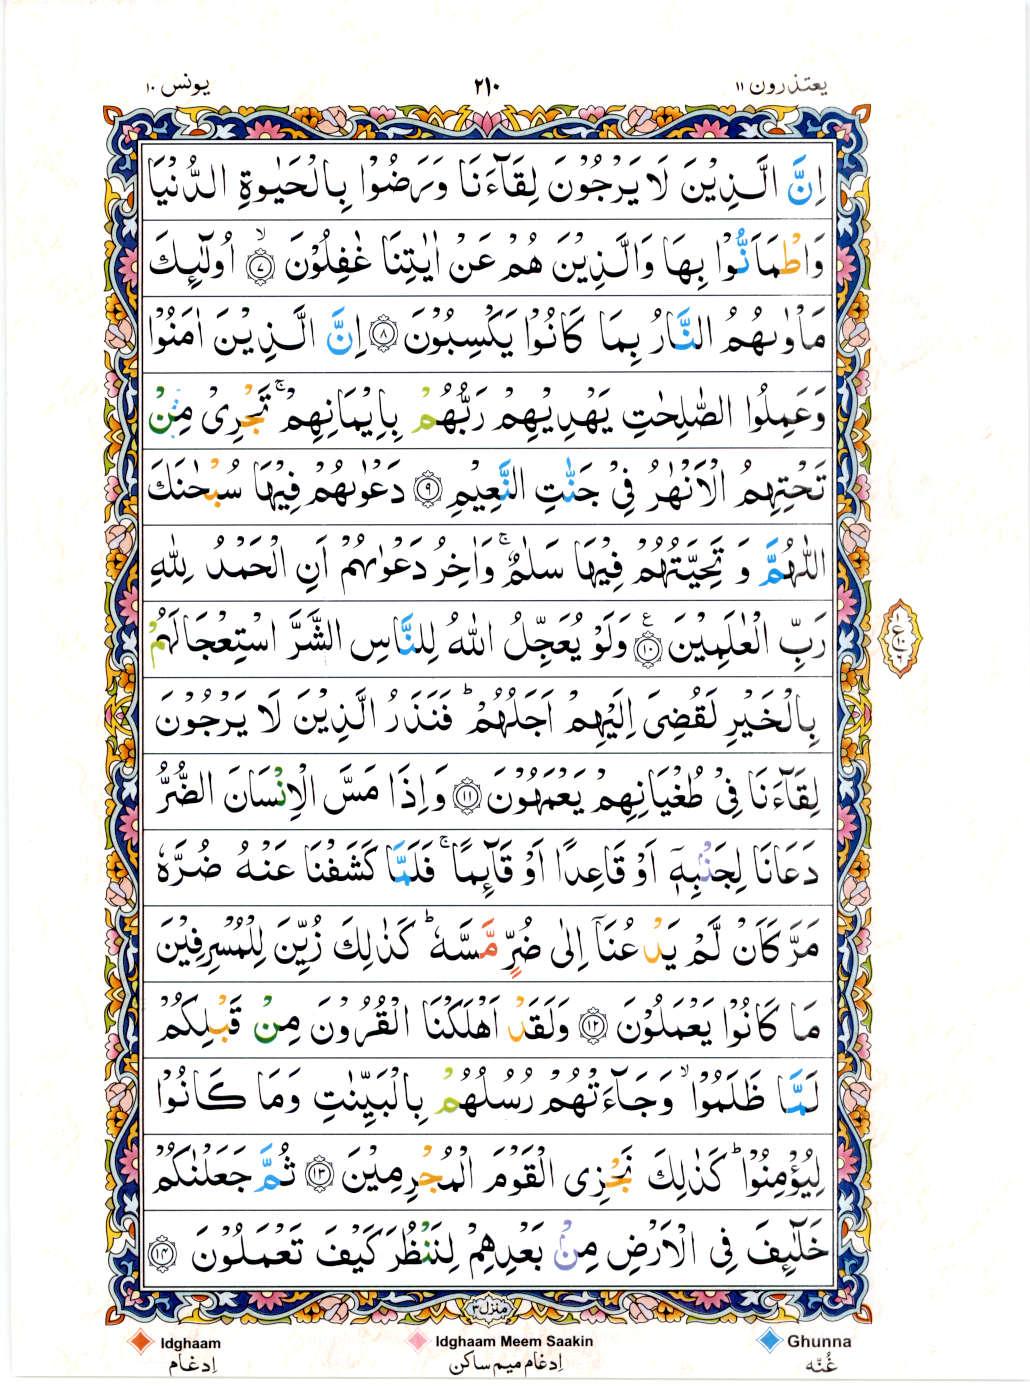 يعتذرون ١١
٢١٠
يونس ١٠
اِنَّ الَّذِيْنَ لَا يَرْجُوْنَ لِقَآءَنَا وَرَضُوْا بِالْحَيٰوةِ الدُّنْيَا
وَاطْمَاَنُّوْا بِهَا وَالَّذِيْنَ هُمْ عَنْ اٰيٰتِنَا غٰفِلُوْنَ ۙ‏﴿٧﴾ اُولٰٓئِكَ
مَاْوٰىهُمُ النَّارُ بِمَا كَانُوْا يَكْسِبُوْنَ ﴿٨﴾ اِنَّ الَّذِيْنَ اٰمَنُوْا
وَعَمِلُوا الصّٰلِحٰتِ يَهْدِيْهِمْ رَبُّهُمْ بِاِيْمَانِهِمْ ۚ تَجْرِىْ مِنْ
تَحْتِهِمُ الْاَنْهٰرُ فِىْ جَنّٰتِ النَّعِيْمِ ﴿٩﴾ دَعْوٰىهُمْ فِيْهَا سُبْحٰنَكَ
اللّٰهُمَّ وَ تَحِيَّتُهُمْ فِيْهَا سَلٰمٌ ۚ وَاٰخِرُ دَعْوٰىهُمْ اَنِ الْحَمْدُ لِلّٰهِ
رَبِّ الْعٰلَمِيْنَ ﴿١٠﴾ ع وَلَوْ يُعَجِّلُ اللّٰهُ لِلنَّاسِ الشَّرَّ اسْتِعْجَالَهُمْ
بِالْخَيْرِ لَقُضِىَ اِلَيْهِمْ اَجَلُهُمْ ؕ فَنَذَرُ الَّذِيْنَ لَا يَرْجُوْنَ
لِقَآءَنَا فِىْ طُغْيَانِهِمْ يَعْمَهُوْنَ ﴿١١﴾ وَاِذَا مَسَّ الْاِنْسَانَ الضُّرُّ
دَعَانَا لِجَنْۢبِهٖۤ اَوْ قَاعِدًا اَوْ قَآئِمًا ۚ فَلَمَّا كَشَفْنَا عَنْهُ ضُرَّهٗ
مَرَّ كَاَنْ لَّمْ يَدْعُنَاۤ اِلٰى ضُرٍّ مَّسَّهٗ ؕ كَذٰلِكَ زُيِّنَ لِلْمُسْرِفِيْنَ
مَا كَانُوْا يَعْمَلُوْنَ ﴿١٢﴾ وَلَقَدْ اَهْلَكْنَا الْقُرُوْنَ مِنْ قَبْلِكُمْ
لَمَّا ظَلَمُوْا ۙ وَجَآءَتْهُمْ رُسُلُهُمْ بِالْبَيِّنٰتِ وَمَا كَانُوْا
لِيُؤْمِنُوْا ؕ كَذٰلِكَ نَجْزِى الْقَوْمَ الْمُجْرِمِيْنَ ﴿١٣﴾ ثُمَّ جَعَلْنٰكُمْ
خَلٰٓئِفَ فِى الْاَرْضِ مِنْۢ بَعْدِهِمْ لِنَنْظُرَ كَيْفَ تَعْمَلُوْنَ ﴿١٤﴾
منزل ٣
Idghaam Idghaam Meem Saakin Ghunna
اِدغام اِدغام ميم ساكن غُنّه